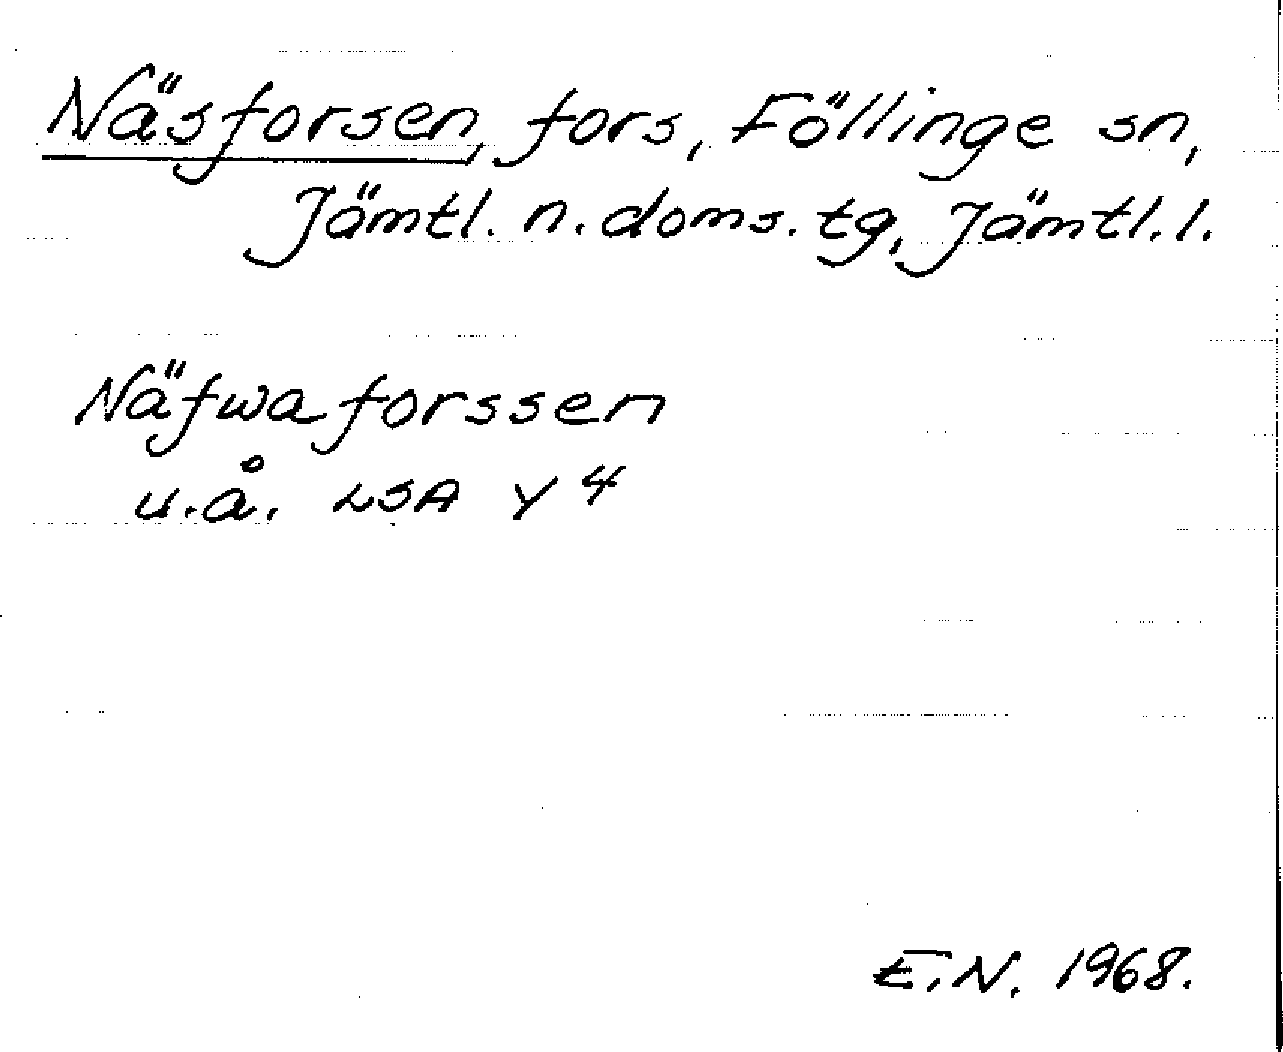 Näsforsen, fors, Föllinge sn,
Jämtl. n. doms. tg, Jämtl. l.
Näfwaforssen
u.å. LSA Y 4
E.N. 1968.